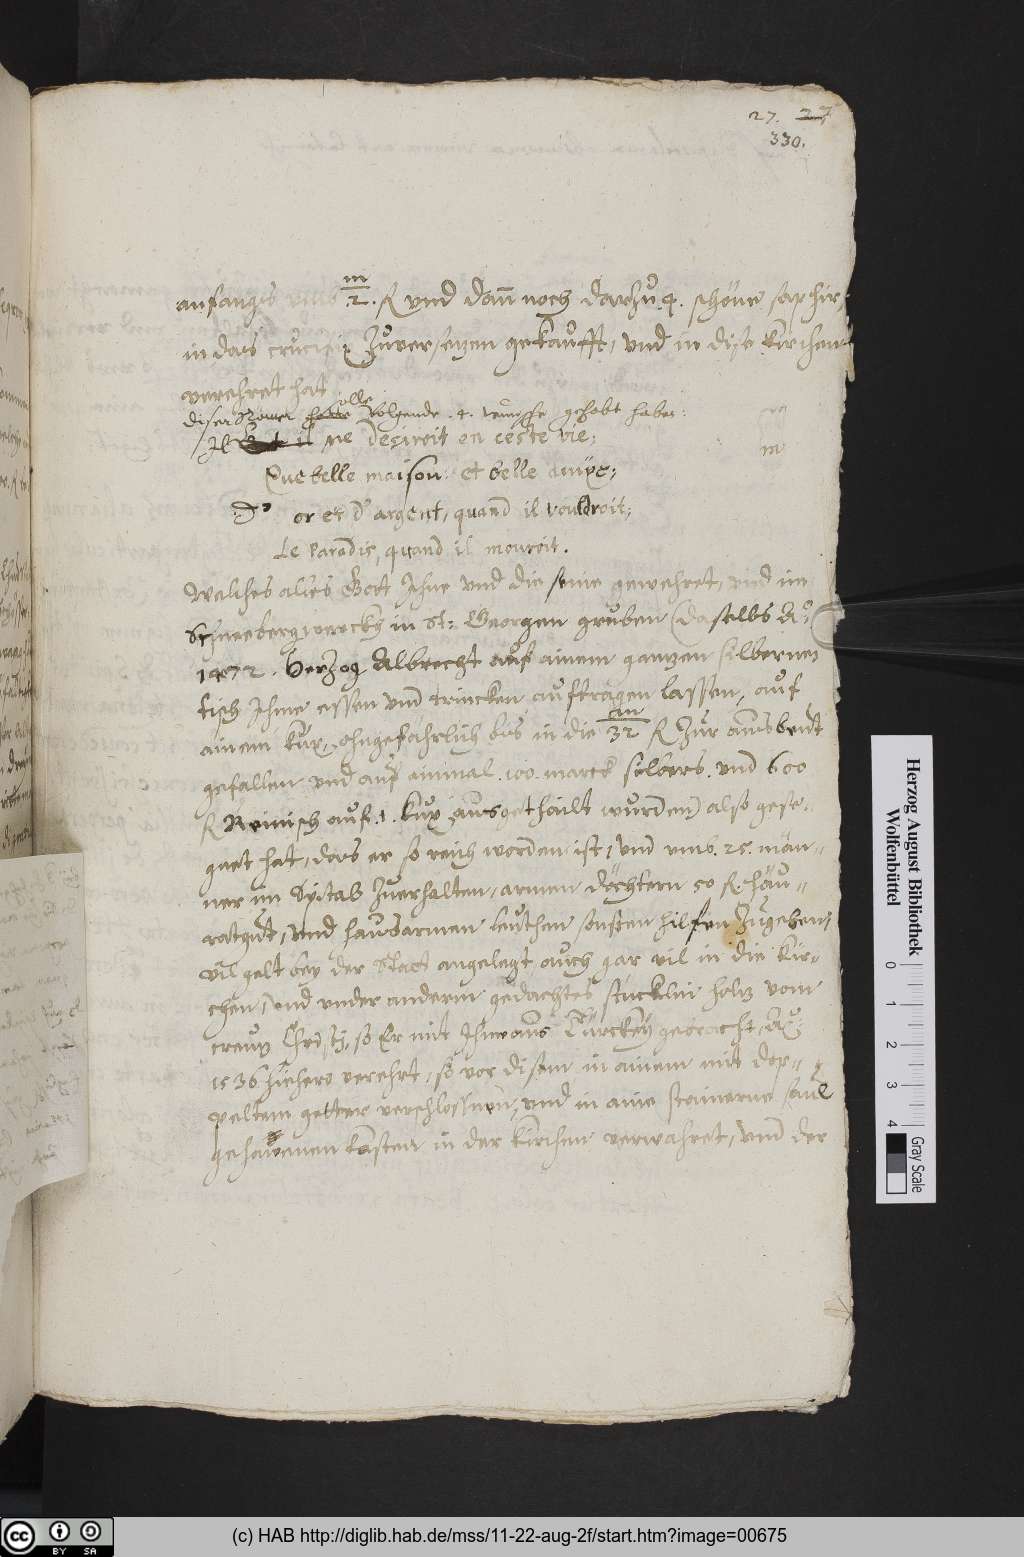 27. 27
330.
m
anfangs umb 2. fl vnd dan̄ noch darzu 4. schöne saphir,
in das crucifix Zuversetzen gekaufft, vnd in dise kirchen
verehret hat
diser Römer solle volgende .4. wünsche gehabt haben:
Il ne desiroit en ceste vie,
m
Que belle maison: et belle amÿe;
D' or et D' argent, quand il vouldroit;
Le Paradis, quand il mouroit.
Welches alles Gott Ihne vnd die seine gewehret, vnd im
Schneebergwerckh in St: Georgen gruben (daselbs Aº:
1472. Herzog Albrecht auf ainem gantzen silbernen
tisch Ihme essen vnd trincken aufftragen lassen, auf
m
ainem kux, ohngefährlich bis in die 32 fl Zur ausbeudt
gefallen vnd auf ainmal .100. marck silbers. vnd 600
fl Reinisch auf .1. kux ausgethailt wurden) also gese-
gnet hat, das er so reich worden ist, vnd vmb .25. män-
ner im Spital Zuerhalten, armen döchtern 50 fl. Heü-
ratgut, vnd hausarmen leuthen sonsten hilffen Zugeben,
vil gelt bey der Statt angelegt, auch gar vil in die kir-
chen, vnd vnder anderm gedachtes stücklin holz vom
creuz Christj, so Er mit Ihme aus Türckey gebracht, Aº:
1536 hiehero verehrt, so vor disem in ainem mit dop-
peltem getter verschlossnen, vnd in aine steinerne saul
gehawenen kasten in der kirchen verwahret, vnd der
Herzog August Bibliothek
Wolfenbüttel
0 1 2 3 4
Gray Scale
cc BY SA
(c) HAB http://diglib.hab.de/mss/11-22-aug-2f/start.htm?image=00675